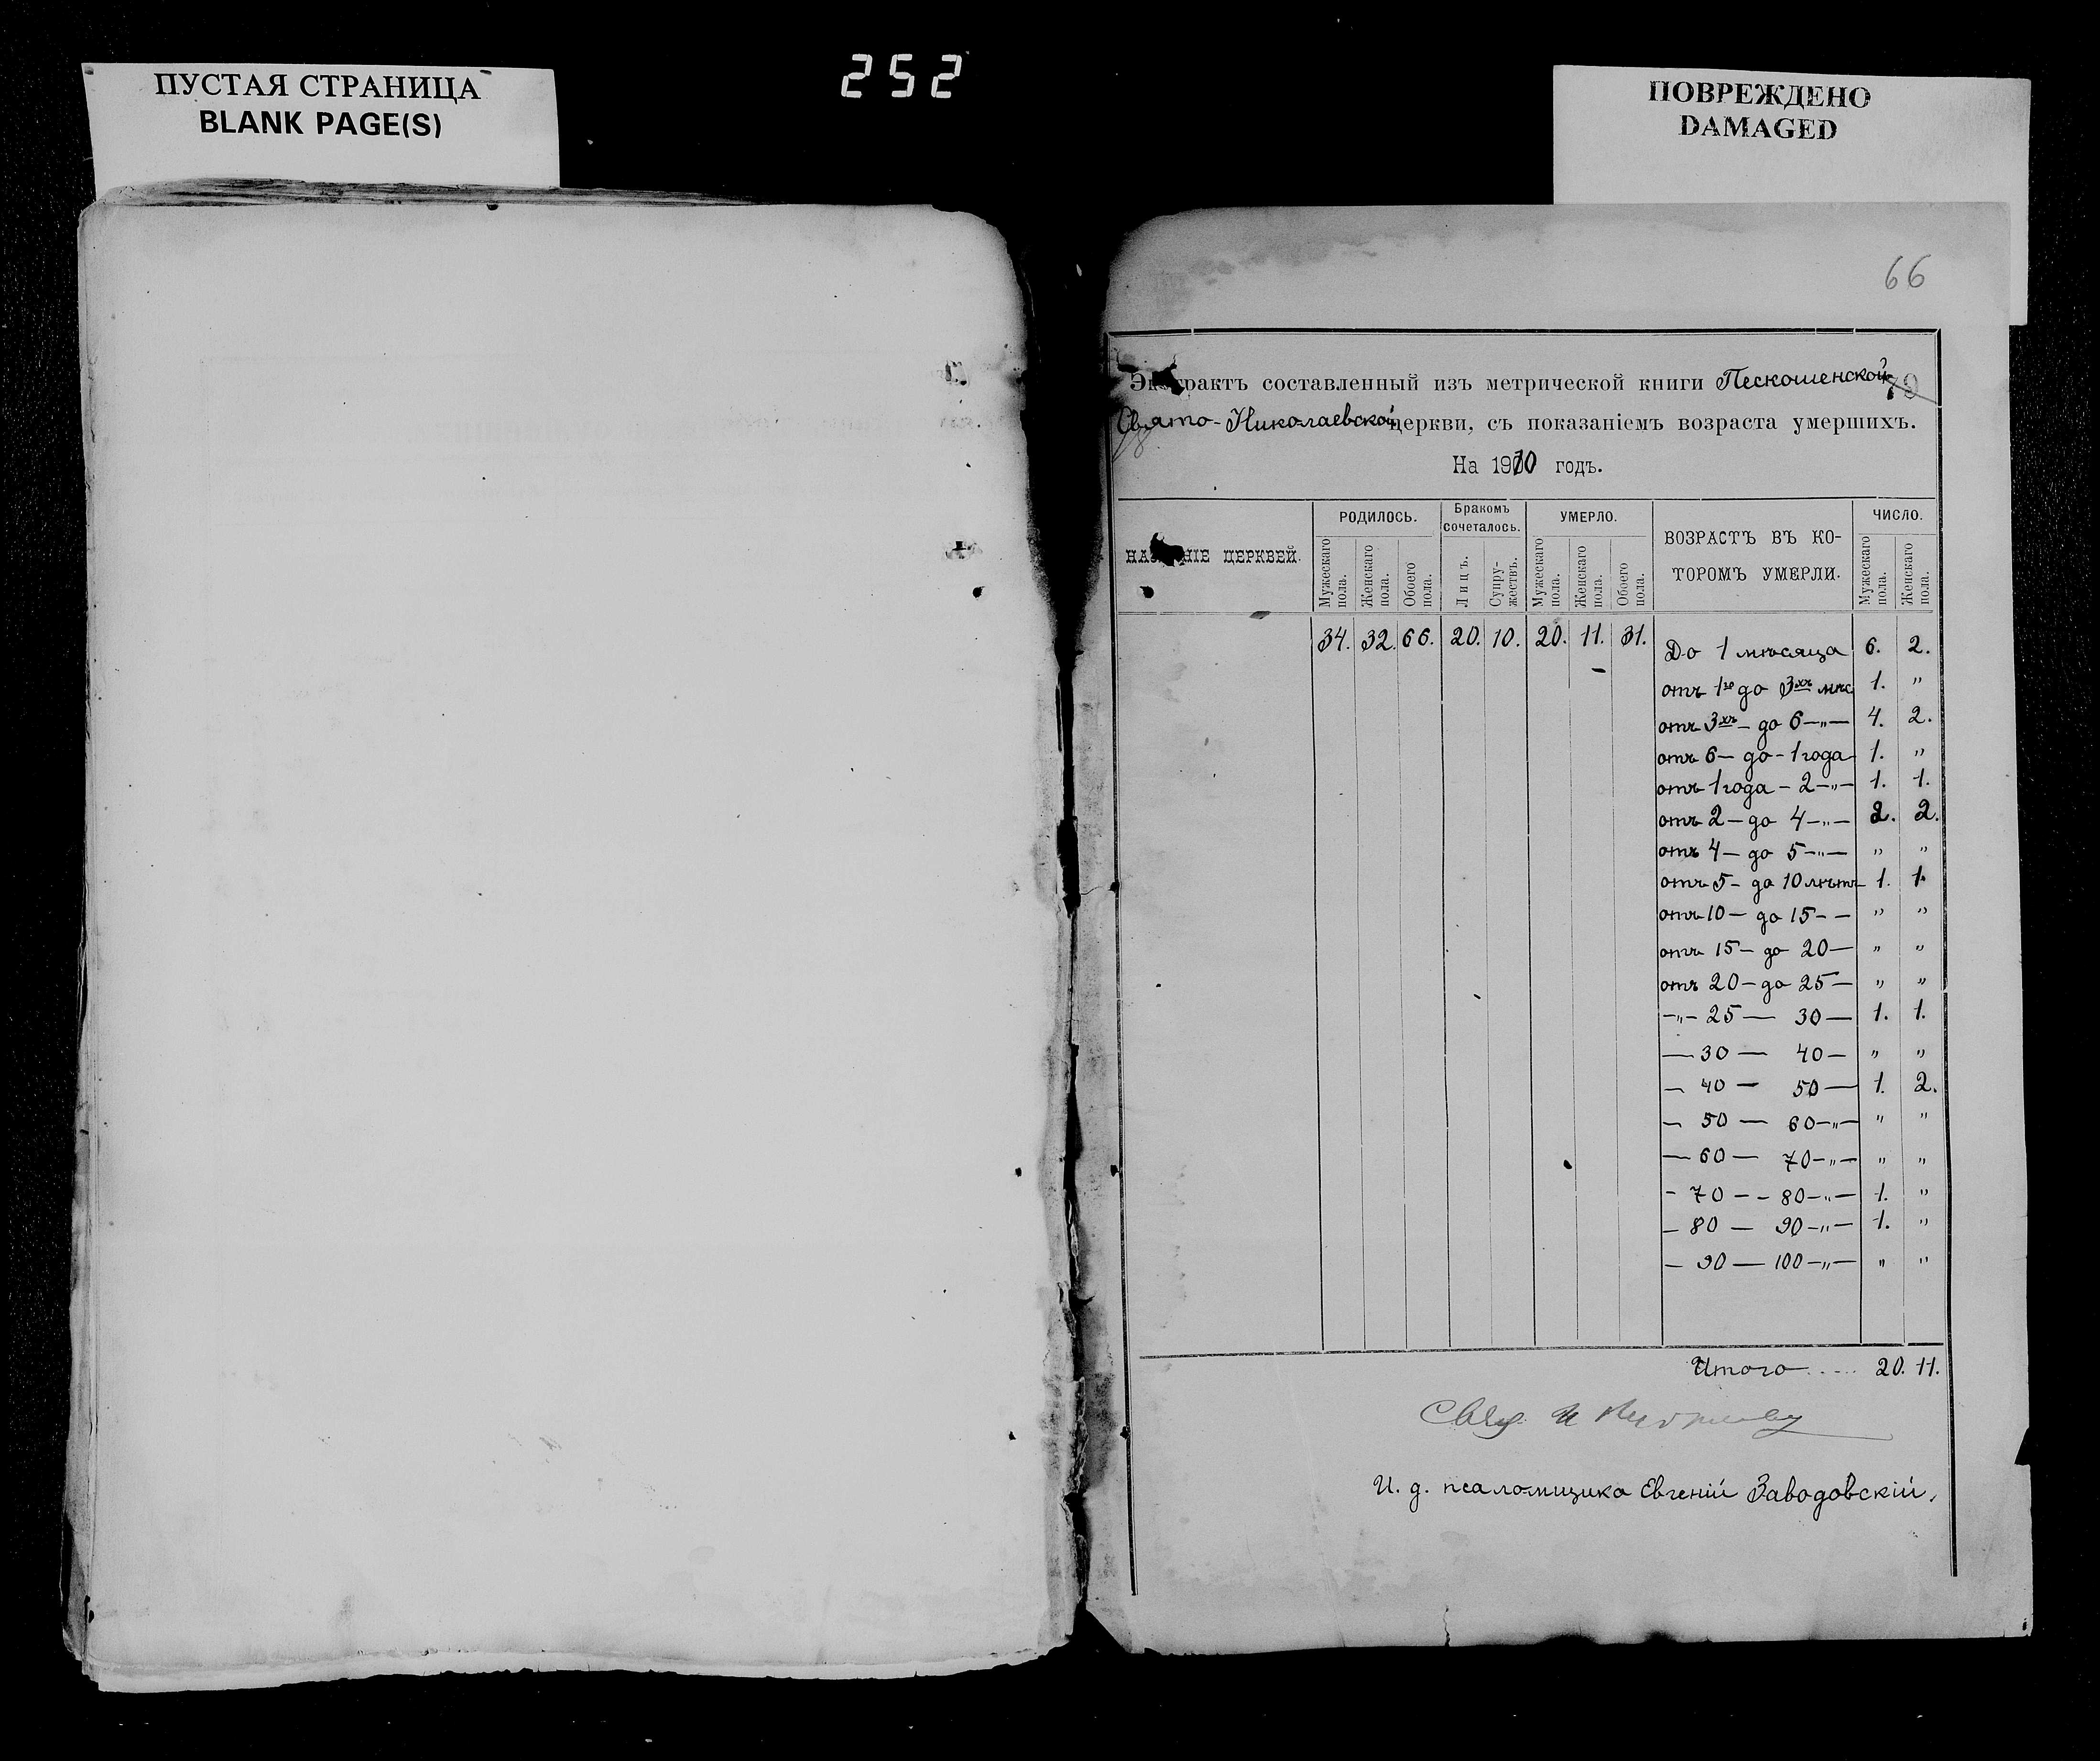 ПУСТАЯ СТРАНИЦА
BLANK PAGE(S)
252
ПОВРЕЖДЕНО
DAMAGED
66
Экстрактъ составленный изъ метрической книги Пескошенской
Свято-Николаевской церкви, съ показаніемъ возраста умершихъ.
На 1910 годъ.
НАЗВАНІЕ ЦЕРКВЕЙ.
РОДИЛОСЬ.
Мужескаго пола.
Женскаго пола.
Обоего пола.
Бракомъ сочеталось.
Лицъ.
Супружествъ.
УМЕРЛО.
Мужескаго пола.
Женскаго пола.
Обоего пола.
ВОЗРАСТЪ ВЪ КО-
ТОРОМЪ УМЕРЛИ.
ЧИСЛО.
Мужескаго пола.
Женскаго пола.
34. 32. 66. 20. 10. 20. 11. 31.
До 1 мѣсяца 6. 2.
отъ 1го до 3хъ мѣс 1. "
отъ 3хъ - до 6 -"- 4. 2.
отъ 6 - до - 1 года 1. "
отъ 1 года - 2 -"- 1. 1.
отъ 2 - до 4 -"- 2. 2.
отъ 4 - до 5 -"- " "
отъ 5 - до 10 лѣтъ 1. 1.
отъ 10 - до 15 - - " "
отъ 15 - до 20 - " "
отъ 20 - до 25 - " "
-"- 25 — 30 — 1. 1.
— 30 — 40 — " "
— 40 — 50 — 1. 2.
— 50 — 60 -"- " "
— 60 — 70 -"- " "
- 70 - - 80 -"- 1. "
— 80 — 90 -"- 1. "
— 90 — 100 -"- " "
Итого .... 20. 11.
И. д. псаломщика Евгеній Заводовскій.